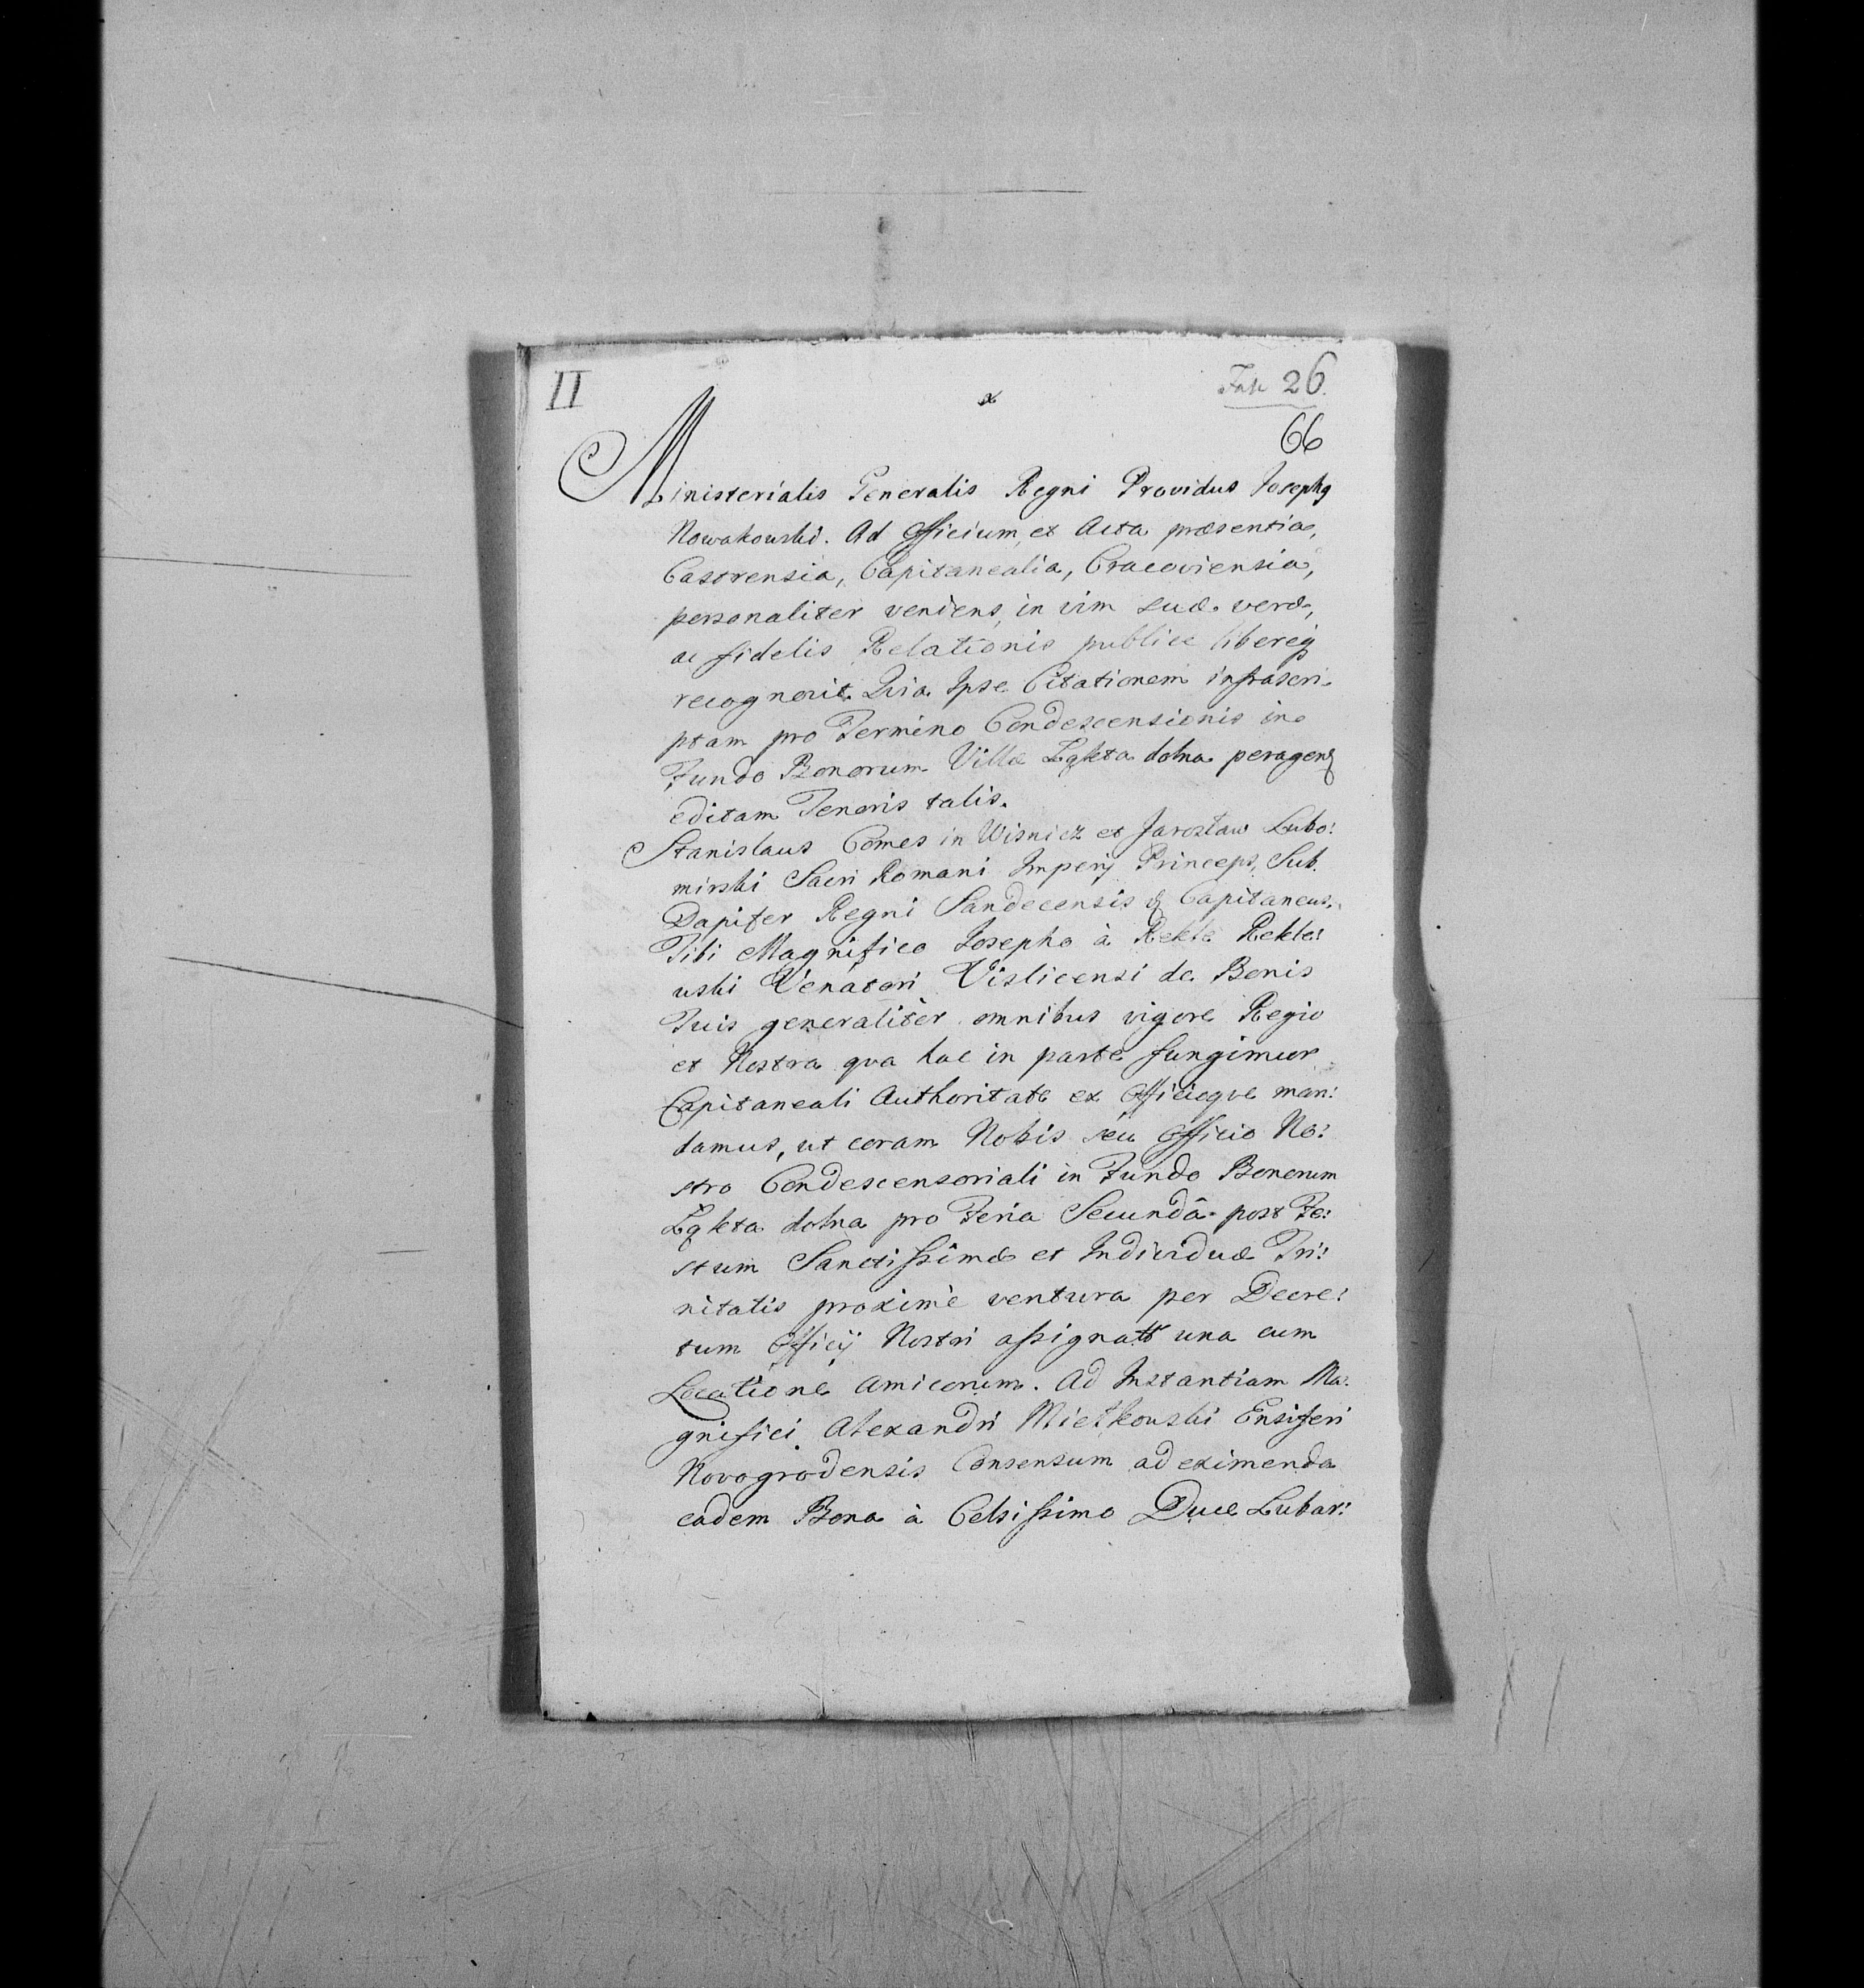 II
Fasc 26.
66
Ministerialis Generalis Regni Providus Josephq
Nowakowski. Ad Officium, et Acta præsentia,
Castrensia, Capitanealia, Cracoviensia,
personaliter veniens, in vim suæ veræ,
ac fidelis Relationis publice libereq
recognovit. Quia Ipse Citationem infrascri-
ptam pro Termino Condescensionis in
Fundo Bonorum Villæ Łąkta dolna peragen
editam Tenoris talis.
Stanislaus Comes in Wisnicz et Jarosław Lubo:
mirski Sacri Romani Imperij Princeps, Sub.
Dapifer Regni Sandecensis & Capitaneus.
Tibi Magnifico Josepho à Rekle Rekle:
wski Venatori Vislicensi de Bonis
Tuis generalitèr omnibus vigore Regio
et Nostra qva hac in parte fungimur
Capitaneali Authoritate ex Officioqve man:
damus, ut coram Nobis seu Officio No:
stro Condescensoriali in Fundo Bonorum
Łąkta dolna pro Feria Secundâ post Fe:
stum Sanctissimæ et Individuæ Tri:
nitatis proximè ventura per Decre:
tum Officij Nostri assignatt una cum
Locatione Amicorum. Ad Instantiam Ma.
gnifici Alexandri Miełkowski Ensiferi
Novogrodensis Consensum ad eximenda
eadem Bona à Celsissimo Duce Lubar: